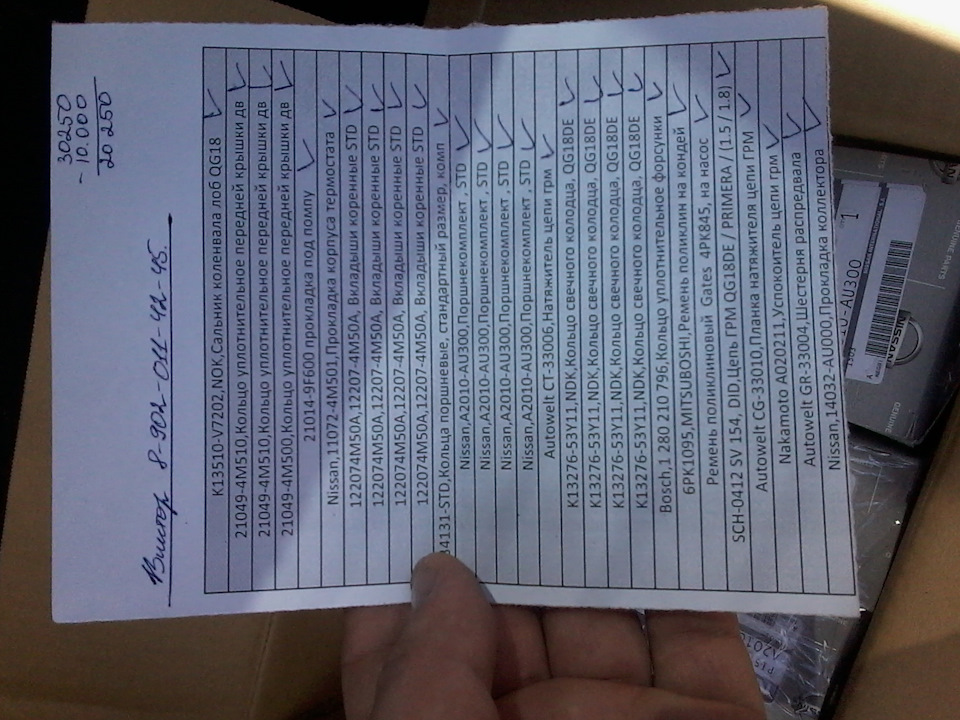 30250
- 10.000
20 250
Виктор 8-902-011-42-45.
K13510-V7202,NOK,Сальник коленвала лоб QG18
21049-4M510,Кольцо уплотнительное передней крышки дв
21049-4M510,Кольцо уплотнительное передней крышки дв
21049-4M500,Кольцо уплотнительное передней крышки дв
21014-9F600 прокладка под помпу
Nissan,11072-4M501,Прокладка корпуса термостата
122074M50A,12207-4M50A, Вкладыши коренные STD
122074M50A,12207-4M50A, Вкладыши коренные STD
122074M50A,12207-4M50A, Вкладыши коренные STD
122074M50A,12207-4M50A, Вкладыши коренные STD
34131-STD,Кольца поршневые, стандартный размер, комп
Nissan,A2010-AU300,Поршнекомплект , STD
Nissan,A2010-AU300,Поршнекомплект , STD
Nissan,A2010-AU300,Поршнекомплект , STD
Nissan,A2010-AU300,Поршнекомплект , STD
Autowelt CT-33006,Натяжитель цепи грм
K13276-53Y11,NDK,Кольцо свечного колодца, QG18DE
K13276-53Y11,NDK,Кольцо свечного колодца, QG18DE
K13276-53Y11,NDK,Кольцо свечного колодца, QG18DE
K13276-53Y11,NDK,Кольцо свечного колодца, QG18DE
Bosch,1 280 210 796,Кольцо уплотнительное форсунки
6PK1095,MITSUBOSHI,Ремень поликлин на кондей
Ремень поликлиновый Gates 4PK845, на насос
SCH-0412 SV 154, DID,Цепь ГРМ QG18DE / PRIMERA / (1.5 / 1.8)
Autowelt CG-33010,Планка натяжителя цепи ГРМ
Nakamoto A20211,Успокоитель цепи грм
Autowelt GR-33004,Шестерня распредвала
Nissan,14032-AU000,Прокладка коллектора
1
-AU300
NISSAN
GENUINE PARTS
GENUINE
A2010